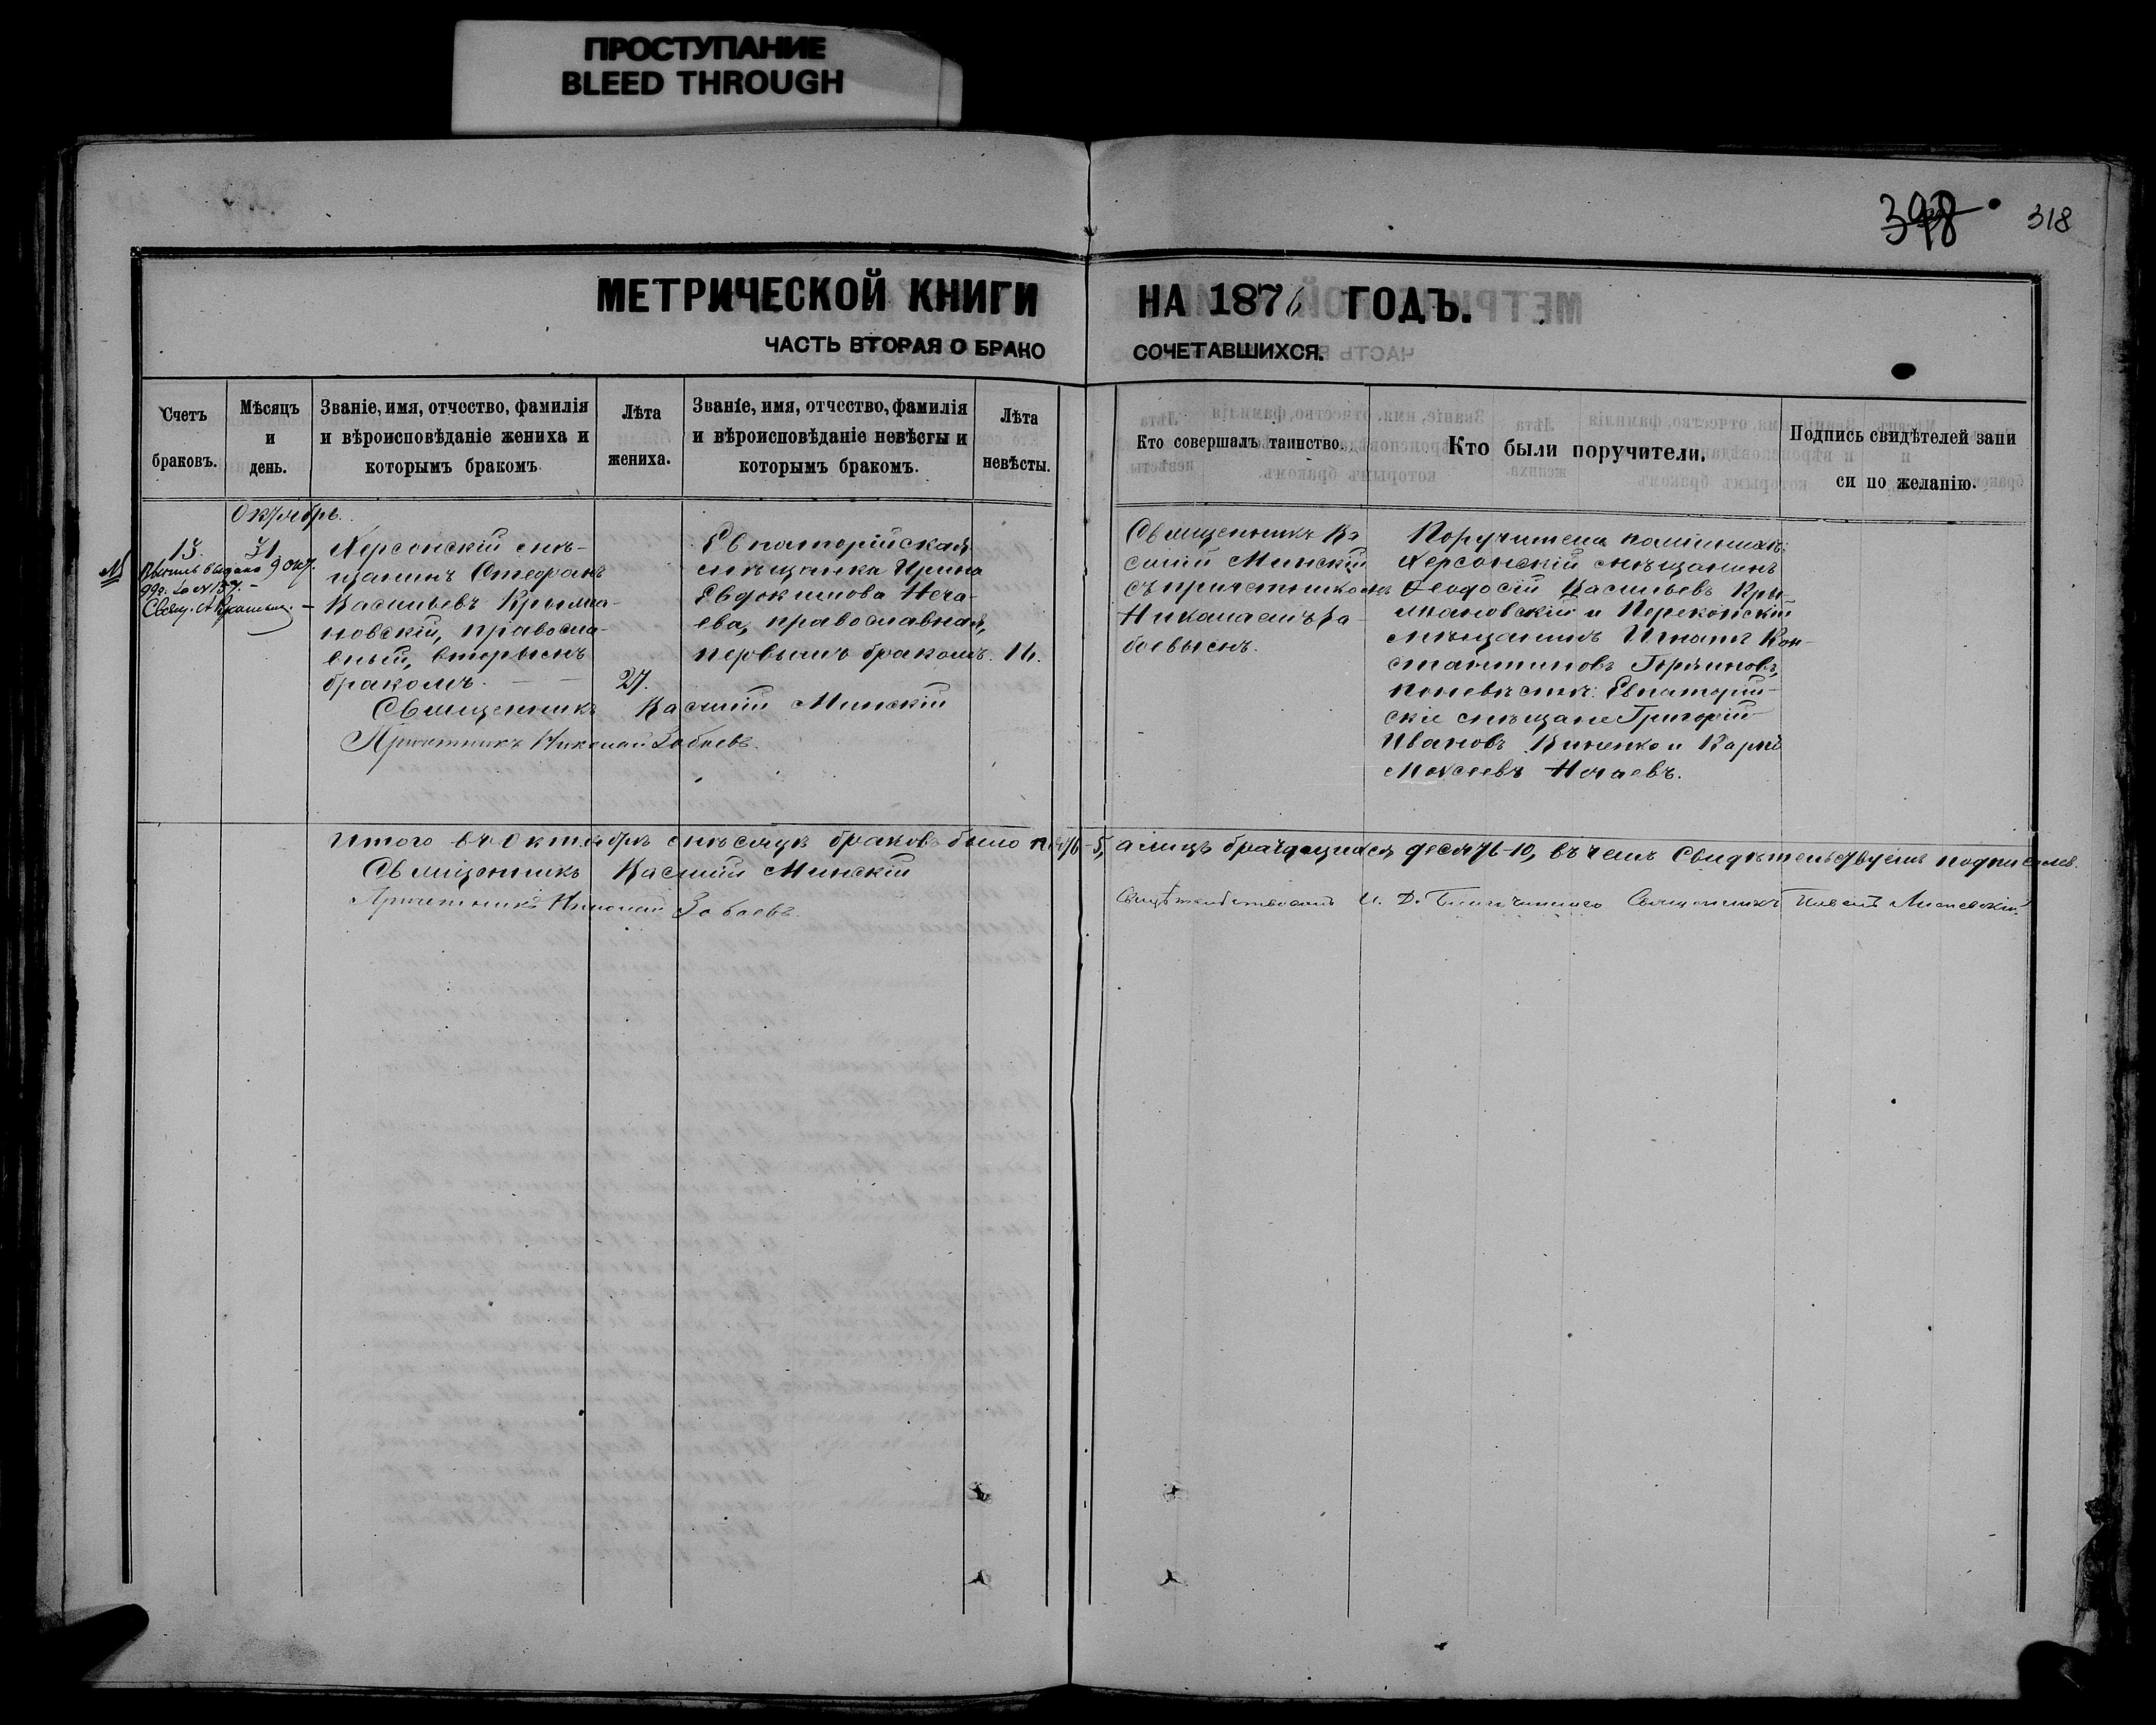 ПРОСТУПАНИЕ
BLEED THROUGH
398 318
МЕТРИЧЕСКОЙ КНИГИ НА 1876 ГОДЪ.
ЧАСТЬ ВТОРАЯ О БРАКО СОЧЕТАВШИХСЯ.
Счетъ
браковъ.
Мѣсяцъ
и
день.
Званіе, имя, отчество, фамилія
и вѣроисповѣданіе жениха и
которымъ бракомъ
Лѣта
жениха.
Званіе, имя, отчество, фамилія
и вѣроисповѣданіе невѣсты и
которымъ бракомъ.
Лѣта
невѣсты.
Кто совершалъ таинство.
Кто были поручители.
Подпись свидѣтелей запи
си по желанію.
Октябрь.
13.
31.
выдано 9 окт.
Свящ.
Херсонскій мѣ-
щанинъ Стефанъ
Васильевъ Крыжа-
новскій, правосла-
вный, вторымъ
бракомъ.
27.
Евпаторійская
мѣщанка Ирина
Евдокимова Неча-
ева, православная,
первымъ бракомъ.
16.
Священникъ Василій Минскій
Причетникъ Николай Забаевъ.
Священникъ Ва
силій Минскій
съ причетникомъ
Николаемъ За-
баевымъ.
Поручители по женихѣ:
Херсонскій мѣщанинъ
Феодосій Васильевъ Кры-
жановскій и Перекопскій
мѣщанинъ Игнатъ Кон-
стантиновъ
по невѣстѣ: Евпаторій-
скіе мѣщане Григорій
Ивановъ и Карпъ
Моисеевъ Нечаевъ.
Итого въ Октябрѣ мѣсяцѣ браковъ было пять-5, а лицъ брачущихся десять-10, въ чемъ Свидѣтельствуемъ подписомъ.
Священникъ Василій Минскій
Причетникъ Николай Забаевъ.
Свидѣтельствовалъ И. Д. Благочиннаго Священникъ